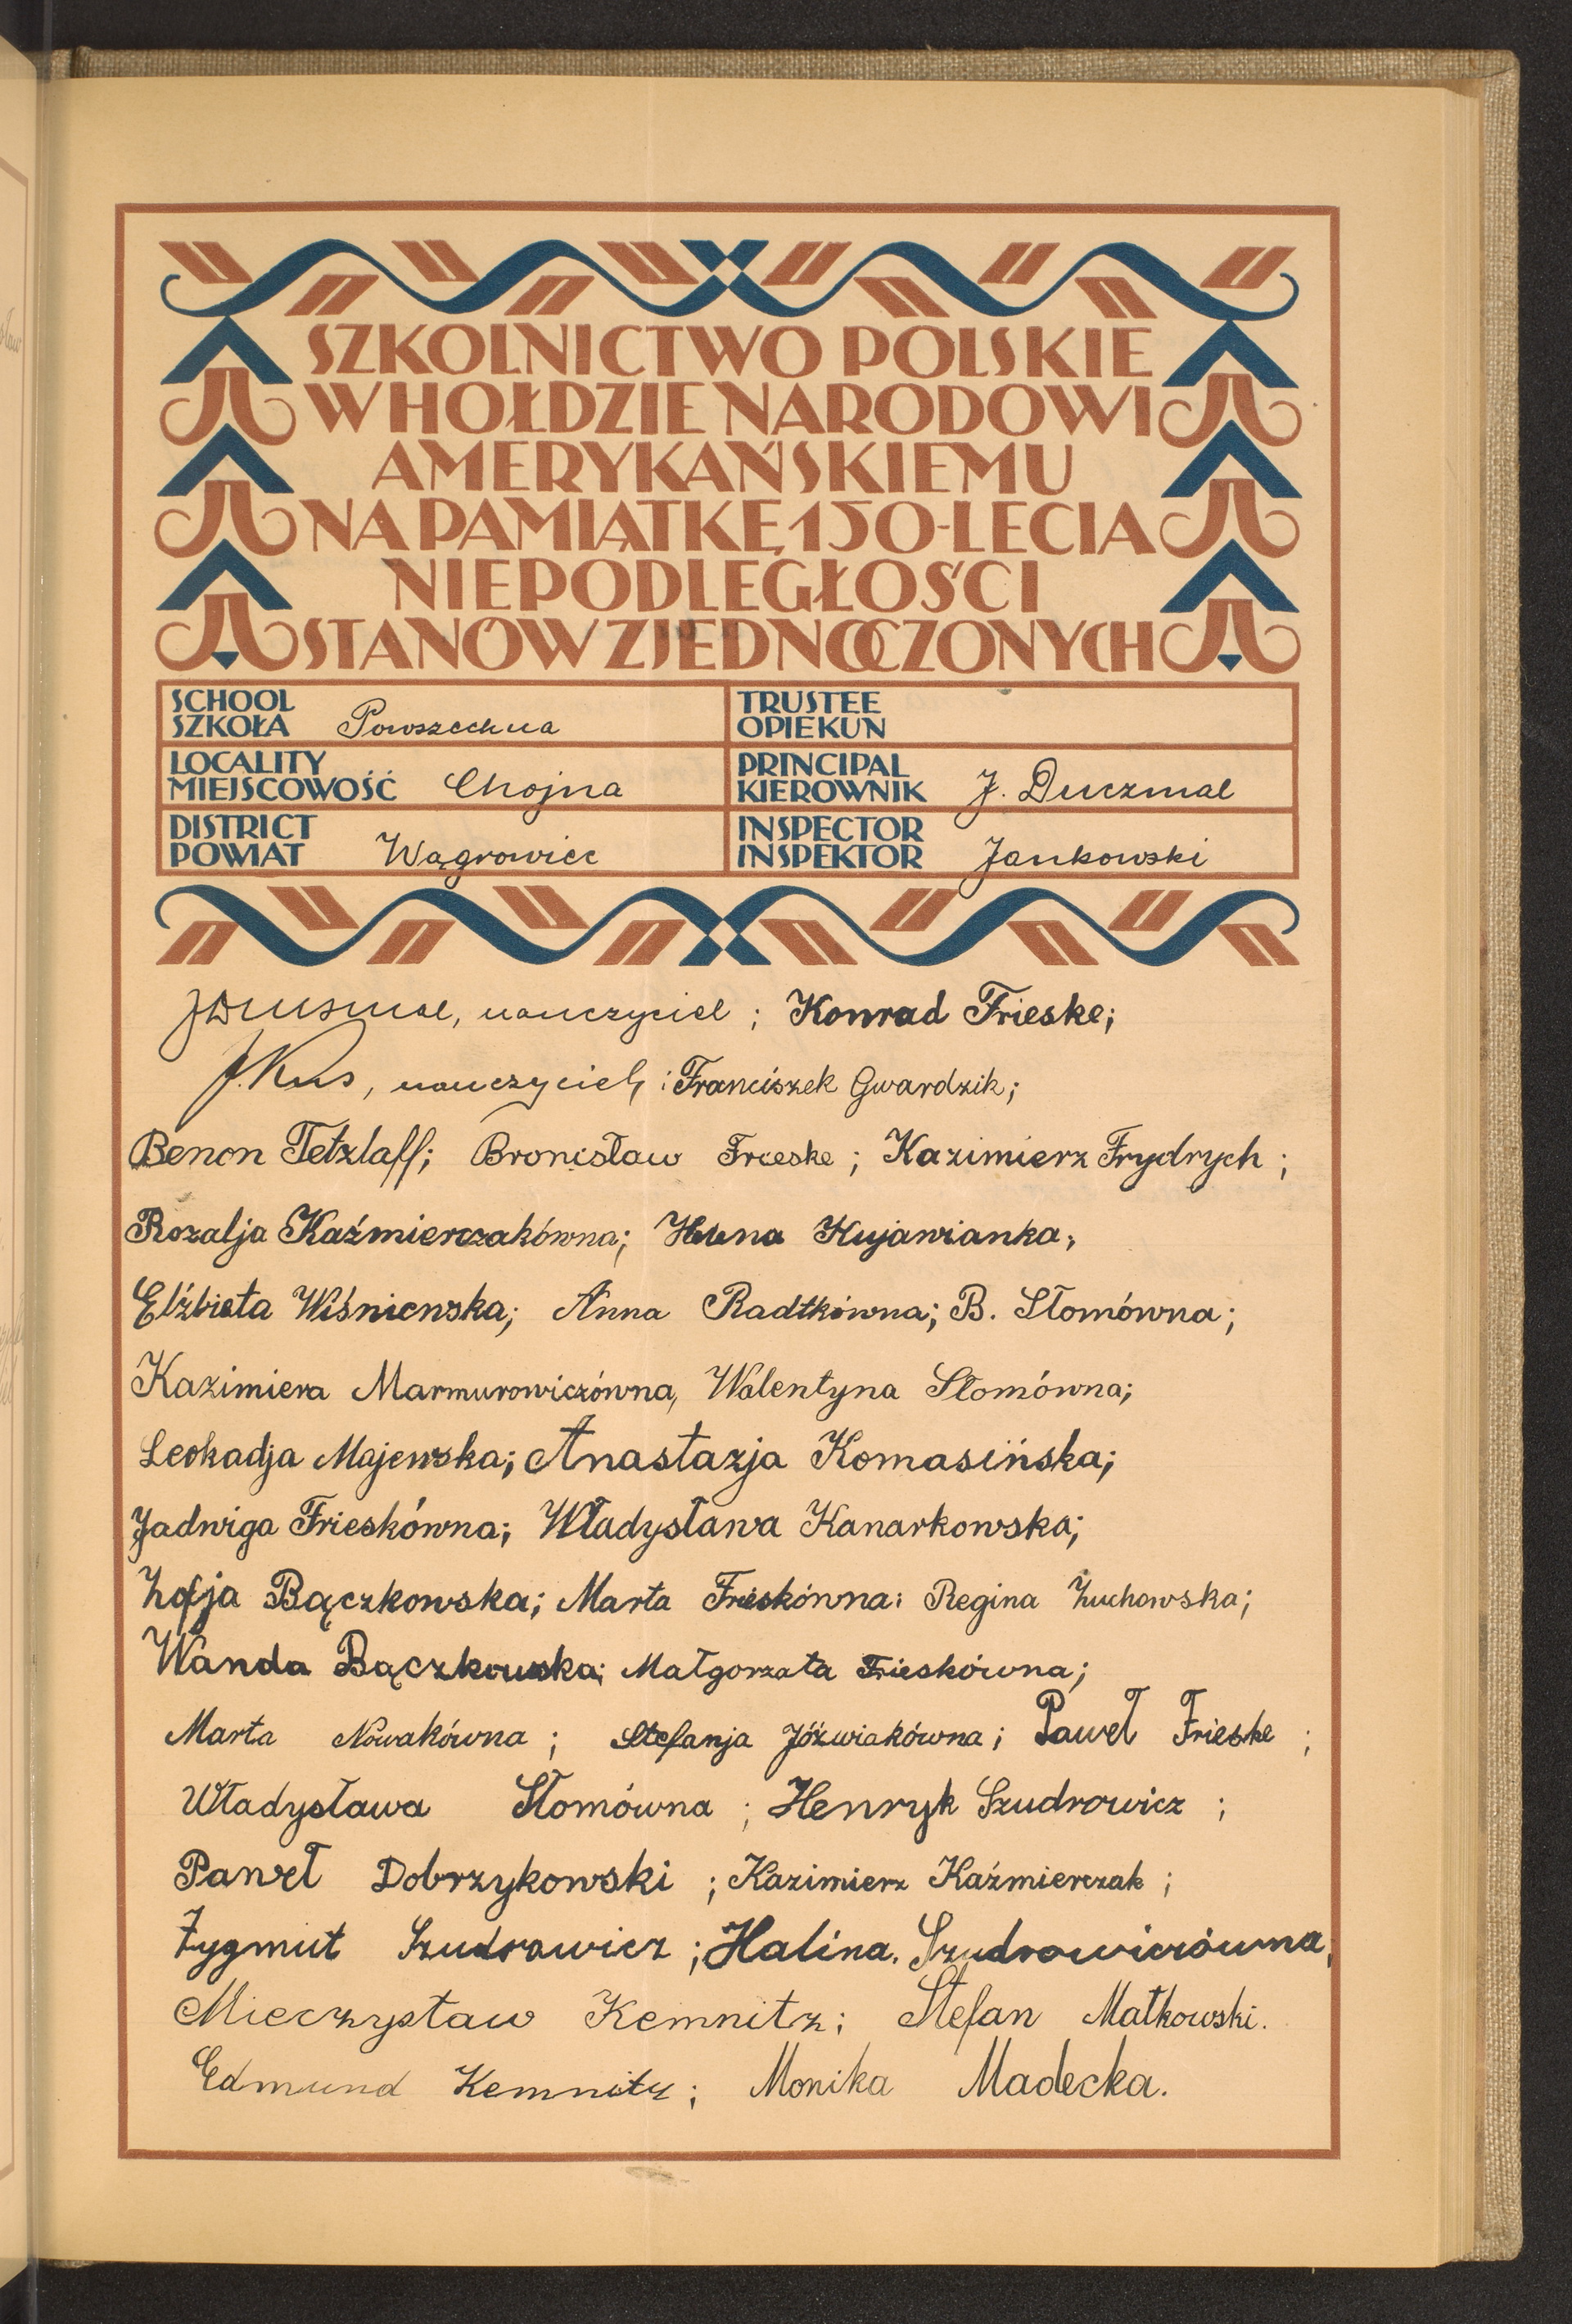 SZKOLNICTWO POLSKIE
W HOŁDZIE NARODOWI
AMERYKAŃSKIEMU
NA PAMIĄTKĘ 150-LECIA
NIEPODLEGŁOŚCI
STANÓW ZJEDNOCZONYCH
SCHOOL
SZKOŁA Powszechna
TRUSTEE
OPIEKUN
LOCALITY
MIEJSCOWOŚĆ Chojna
PRINCIPAL
KIEROWNIK J. Duczmal
DISTRICT
POWIAT Wągrowiec
INSPECTOR
INSPEKTOR Jankowski
JDuczmal, nauczyciel; Konrad Frieske;
J. Kus, nauczyciel; Franciszek Gwardzik;
Benon Tetzlaff; Bronisław Frieske; Kazimierz Frydrych;
Rozalja Kaźmierczakówna; Helena Kujawianka;
Elżbieta Wiśniewska; Anna Radtkówna; B. Słomówna;
Kazimiera Marmurowiczówna, Walentyna Słomówna;
Leokadja Majewska; Anastazja Komasińska;
Jadwiga Frieskówna; Władysława Kanarkowska;
Zofja Bączkowska; Marta Frieskówna; Regina Żuchowska;
Wanda Bączkowska; Małgorzata Frieskówna;
Marta Nowakówna; Stefanja Jóźwiakówna; Paweł Frieske;
Władysława Słomówna; Henryk Szudrowicz;
Paweł Dobrzykowski; Kazimierz Kaźmierczak;
Zygmut Szudrowicz; Halina. Szudrowiczówna,
Mieczysław Kemnitz; Stefan Małkowski.
Edmund Kemnitz; Monika Madecka.